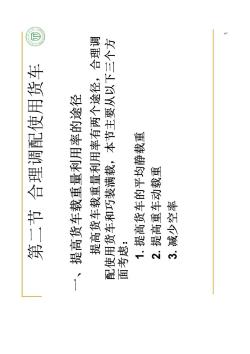 第二节 合理调配使用货车
一、提高货车载重量利用率的途径
提高货车载重量利用率有两个途径，合理调
配使用货车和巧装满载，本节主要从以下三个方
面考虑：
1. 提高货车的平均静载重
2. 提高重车动载重
3. 减少空率